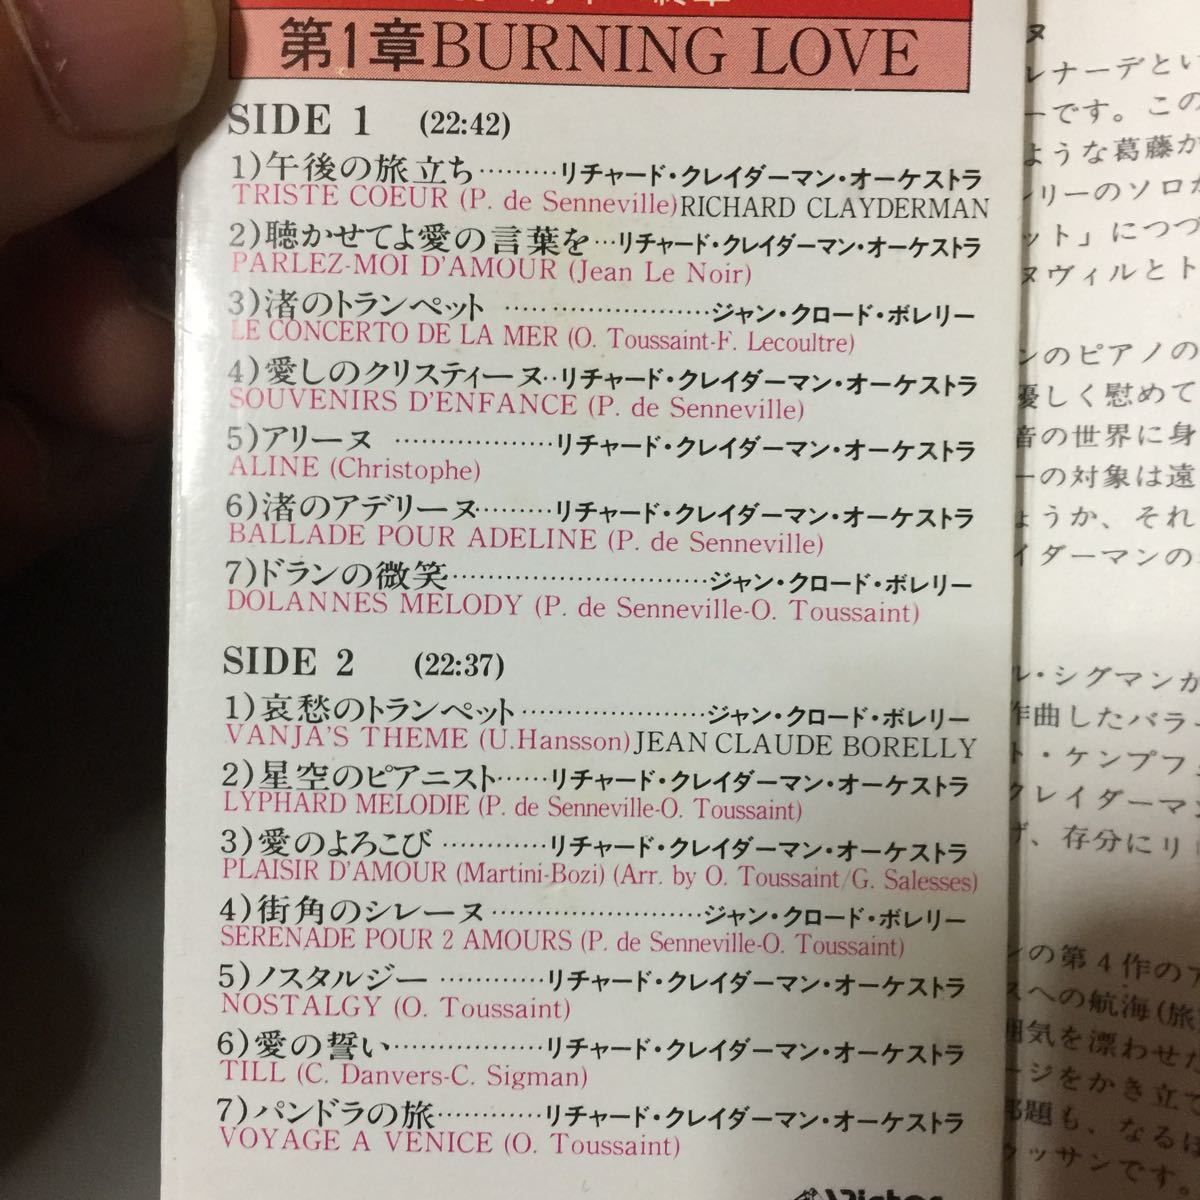 第1章BURNING LOVE
SIDE 1 (22:42)
1)午後の旅立ち………リチャード・クレイダーマン・オーケストラ
TRISTE COEUR (P. de Senneville)RICHARD CLAYDERMAN
2)聴かせてよ愛の言葉を…リチャード・クレイダーマン・オーケストラ
PARLEZ-MOI D'AMOUR (Jean Le Noir)
3)渚のトランペット …………………ジャン・クロード・ボレリー
LE CONCERTO DE LA MER (O. Toussaint-F. Lecoultre)
4)愛しのクリスティーヌ‥リチャード・クレイダーマン・オーケストラ
SOUVENIRS D'ENFANCE (P. de Senneville)
5)アリーヌ ………………リチャード・クレイダーマン・オーケストラ
ALINE (Christophe)
6)渚のアデリーヌ………リチャード・クレイダーマン・オーケストラ
BALLADE POUR ADELINE (P. de Senneville)
7)ドランの微笑………………………ジャン・クロード・ボレリー
DOLANNES MELODY (P. de Senneville-O. Toussaint)
SIDE 2 (22:37)
1)哀愁のトランペット…………………ジャン・クロード・ボレリー
VANJA'S THEME (U.Hansson)JEAN CLAUDE BORELLY
2)星空のピアニスト……リチャード・クレイダーマン・オーケストラ
LYPHARD MELODIE (P. de Senneville-O. Toussaint)
3)愛のよろこび …………リチャード・クレイダーマン・オーケストラ
PLAISIR D'AMOUR (Martini-Bozi) (Arr. by O. Toussaint/G. Salesses)
4)街角のシレーヌ……………………ジャン・クロード・ボレリー
SERENADE POUR 2 AMOURS (P. de Senneville-O. Toussaint)
5)ノスタルジー …………リチャード・クレイダーマン・オーケストラ
NOSTALGY (O. Toussaint)
6)愛の誓い………………リチャード・クレイダーマン・オーケストラ
TILL (C. Danvers-C. Sigman)
7)パンドラの旅…………リチャード・クレイダーマン・オーケストラ
VOYAGE A VENICE (O. Toussaint)
Victor
ヌ
レナーデとい
ーです。この
ような葛藤か
リーのソロカ
ット」につづ
ヌヴィルとト
ンのピアノの
優しく慰めて
音の世界に身
ーの対象は遠
ょうか、それ
イダーマンの
ル・シグマンか
作曲したバラ
ト・ケンプフ
クレイダーマン
ず、存分にリ
ンの第4作のア
スへの航海(旅
囲気を漂わせた
ージをかき立て
邦題も、なるほ
ゥッサンです。